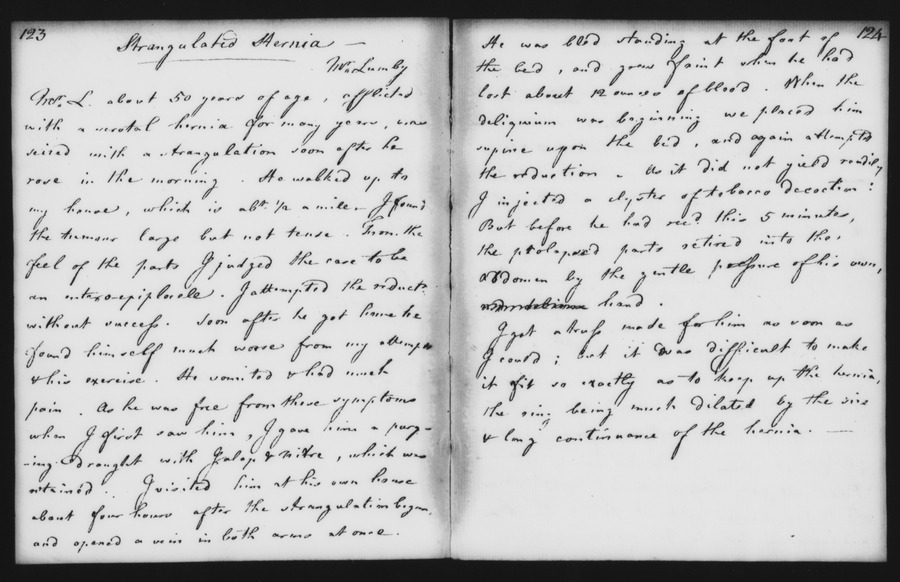 123
Strangulated Hernia —
Mr. Lumby
Mr. L. about 50 years of age, afflicted
with a scrotal hernia for many years, was
seized with a strangulation soon after he
rose in the morning. He walked up to
my house, which is abt. 1/2 a mile. I found
the tumour large but not tense. From the
feel of the parts I judged the case to be
an entero-epiplocele. I attempted the reductn.
without success. Soon after he got home he
found himself much worse from my attempts
& his exercise. He vomited & had much
pain. As he was free from these symptoms
when I first saw him, I gave him a purg-
-ing draught with Jalap & nitre, which was
retained. I visited him at his own house
about four hours after the strangulation began,
and opened a vein in both arms at once.
124
He was bled standing at the foot of
the bed, and grew faint when he had
lost about 12 ounces of blood. When the
deliquium was beginning we placed him
supine upon the bed, and again attempted
the reduction. As it did not yield readily
I injected a clyster of tobacco decoction:
But before he had recd. this 5 minutes,
the prolapsed parts retired into the
abdomen by the gentle pressure of his own,
hand.
I got a truss made for him as soon as
I could; but it was difficult to make
it fit so exactly as to keep up the hernia,
the ring being much dilated by the size
& long continuance of the hernia. —